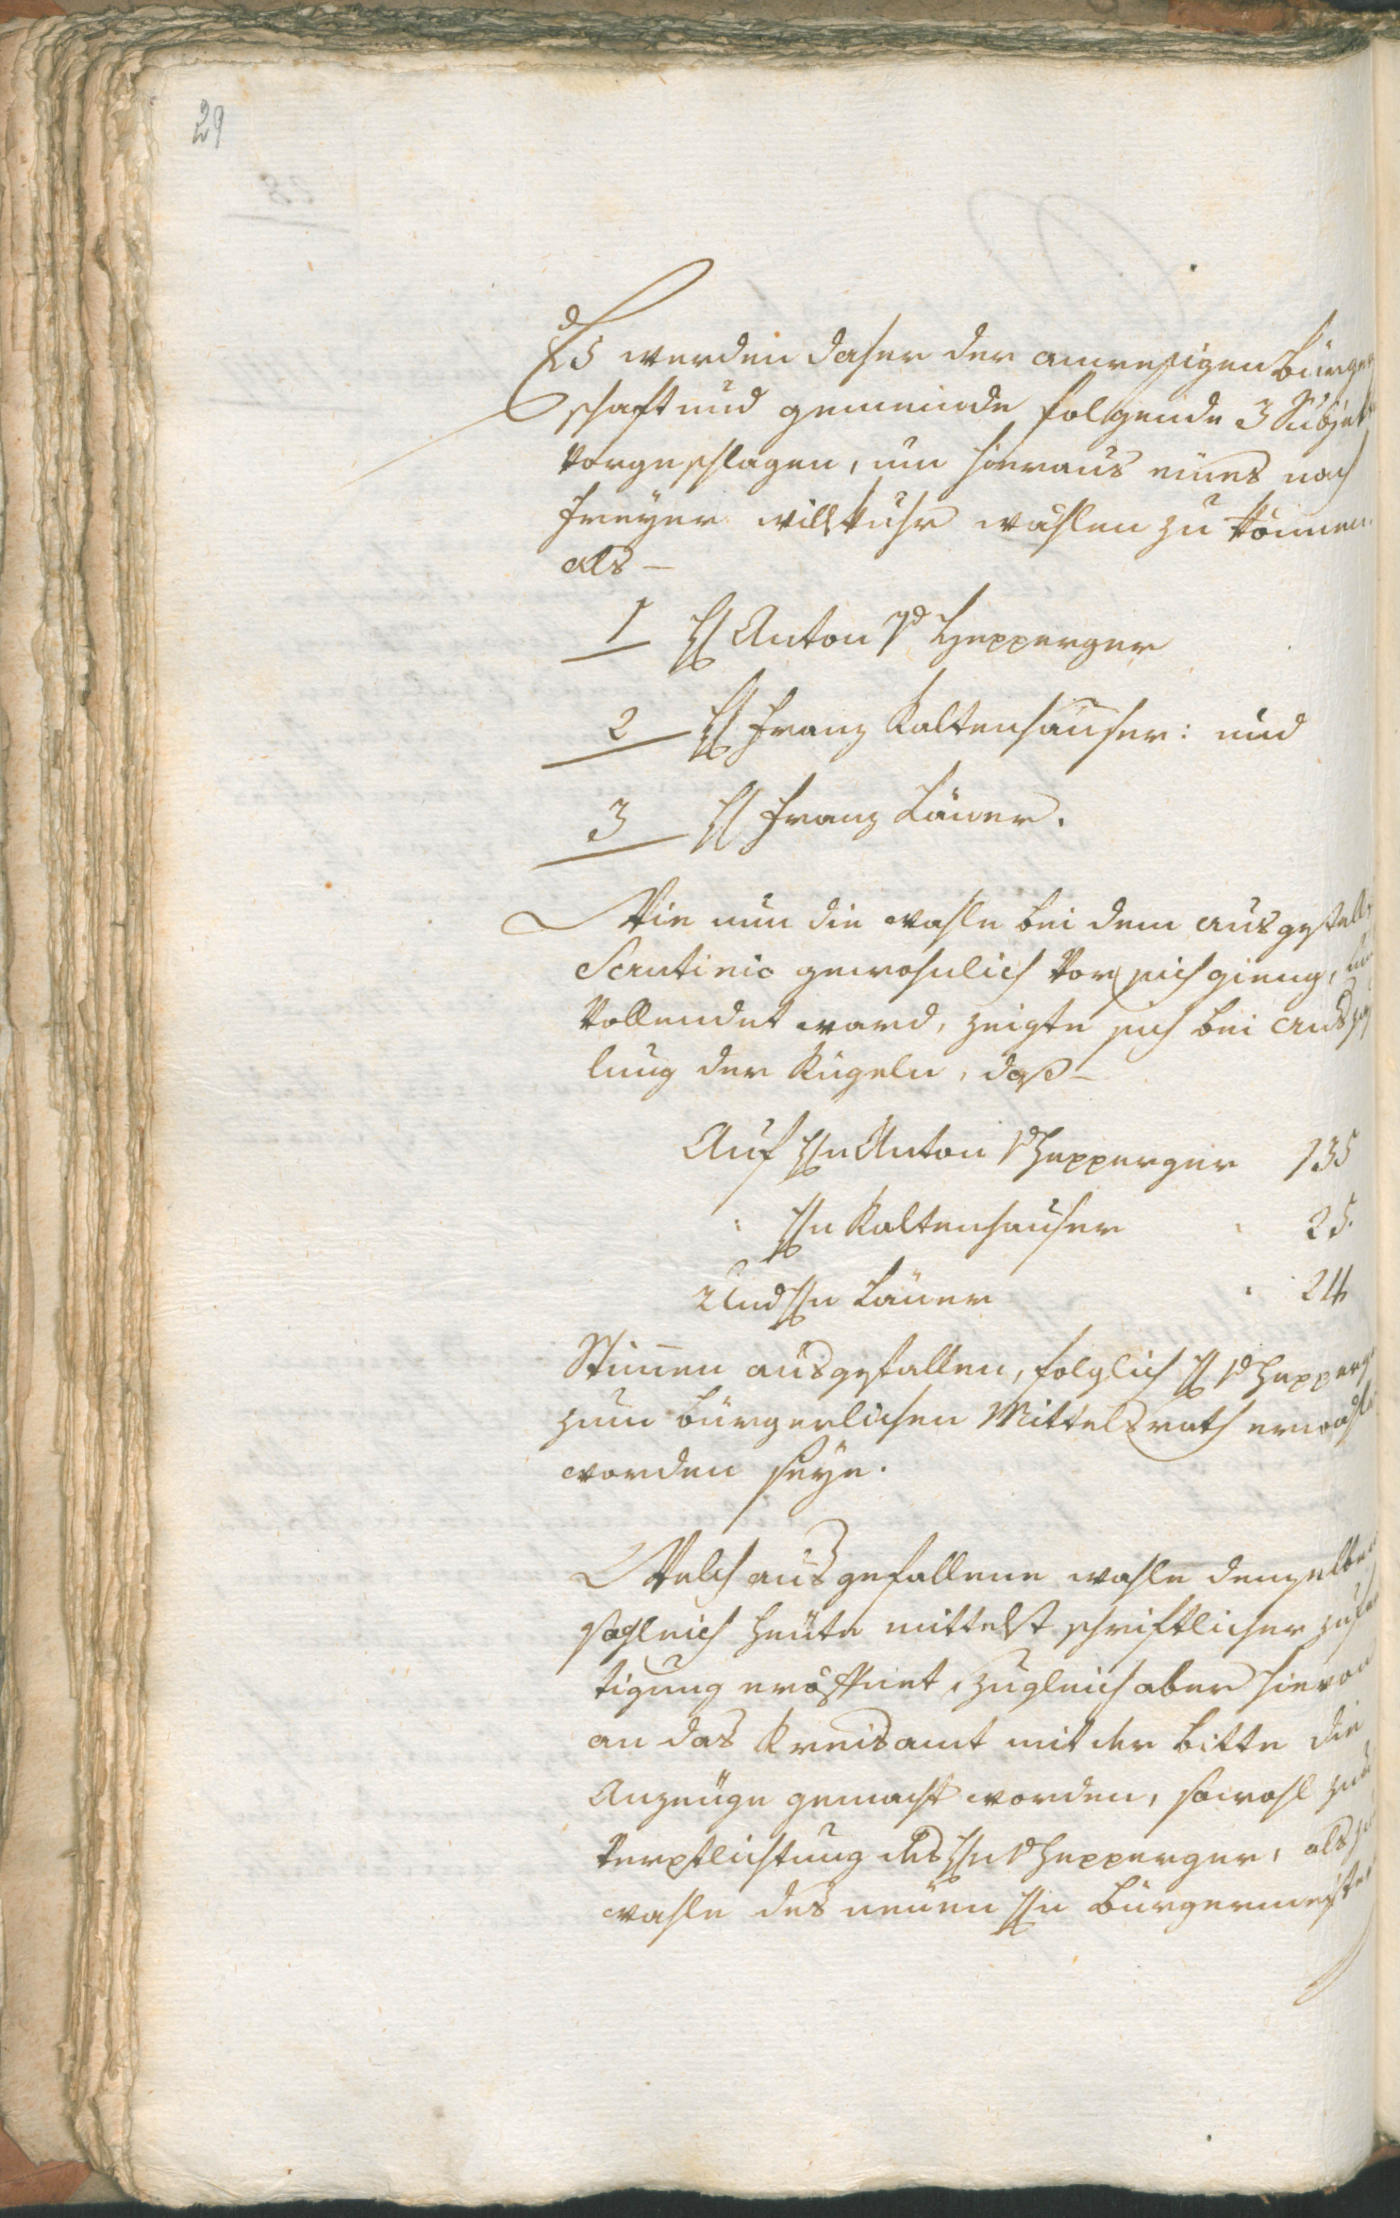 29
Es werden daher der anwesigen Bürger
schaft und gemeinde folgende 3 Subjekt
vorgeschlagen, um hieraus eines nach
freyer willkuhr wählen zu können
als –
1 H Anton v Hepperger
2 H Franz Kaltenhauser: und
3 H Franz Läner.
Wie nun die wahle bei dem ausgestell
Scrutinio gewohnlich vor sich gieng,
vollendet ward, zeigte sich bei Auszäh
lung der Kugeln, daß –
Auf Hn Anton v Hepperger 135
" Hn Kaltenhauser " 25.
Und Hn Läner " 24
Stimen ausgefallen, folglich H v Hepperge
zum bürgerlichen Mittelsrath erwähl
worden seye.
Welch ausgefallene wahle demselben
sogleich heute mittelst schriftlicher zufer
tigung eröffnet, zugleich aber hievon
an das Kreisamt mit der bitte die
Anzeuge gemacht worden, sowohl zur
Verpflichtung des Hn v Hepperger, als zu
wahle des neuen Hn Bürgermeister